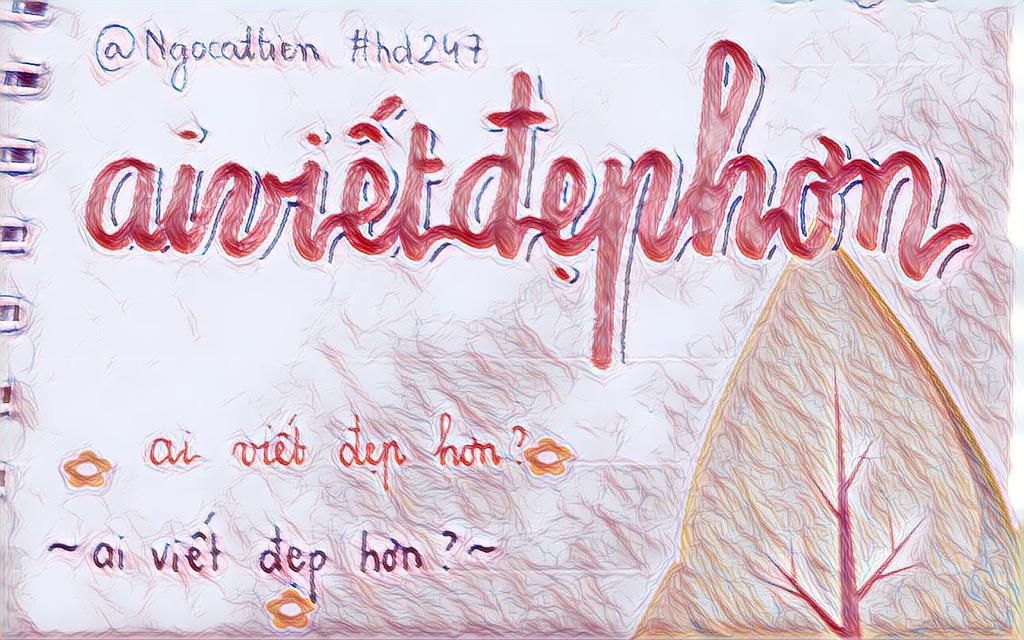 @Ngocattien #hd247
aiviếtđẹphơn
ai viết đẹp hơn?
~ai viết đẹp hơn?~